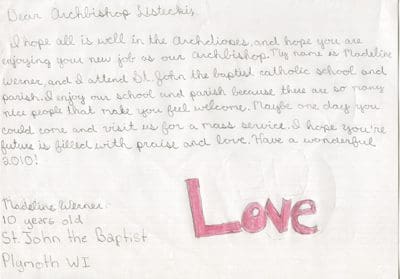 Dear Archbishop Listecki,
I hope all is well in the Archdioses, and hope you are
enjoying your new job as our archbishop. My name is Madeline
Werner, and I attend St. John the baptist catholic school and
parish. I enjoy our school and parish because thee are so many
nice people that make you feel welcome. Maybe one day you
could come and visit us for a mass service. I hope you're
future is filled with praise and love. Have a wonderful
2010!
Madeline Werner
10 years old
St. John the Baptist
Plymoth WI
Love